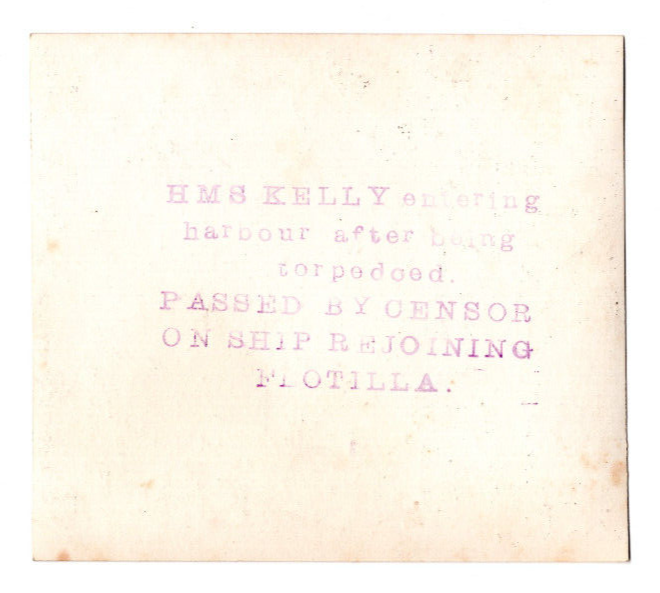 HMS KELLY entering
harbour after being
torpedoed.
PASSED BY CENSOR
ON SHIP REJOINING
FLOTILLA.